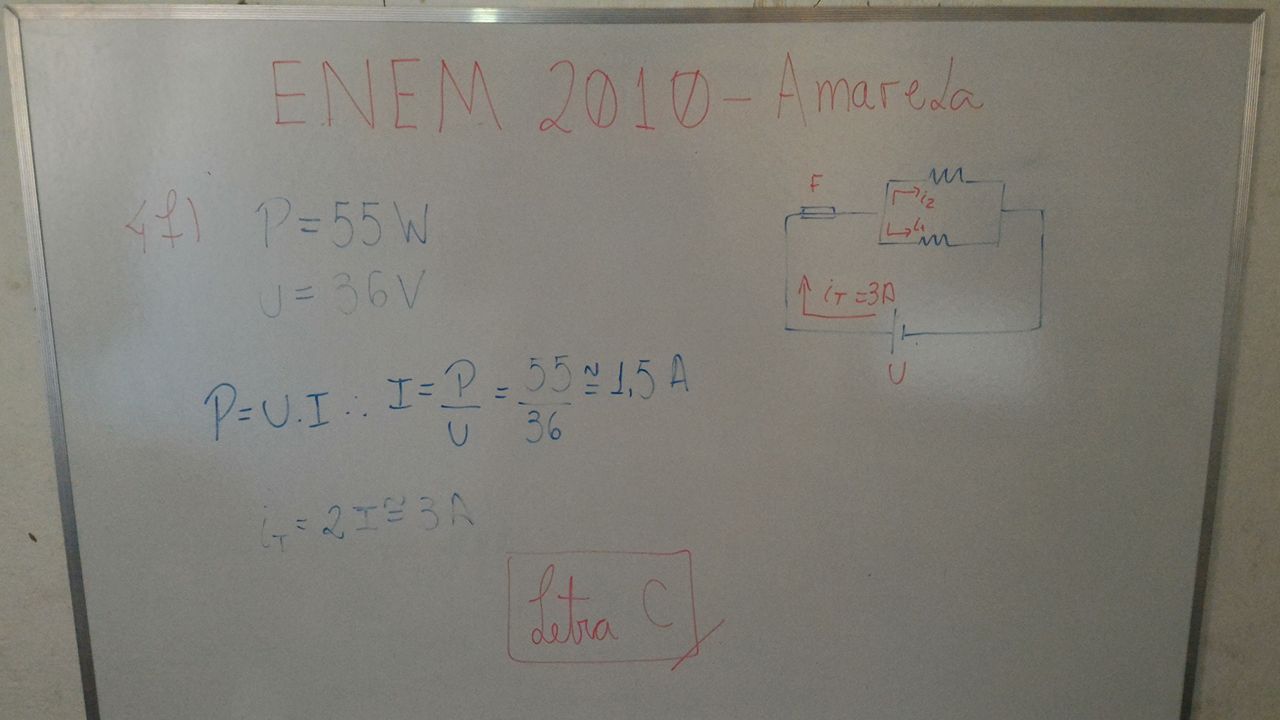 ENEM 2010 - Amarela
47) P = 55 W
U = 36 V
P = U.I ∴ I = P/U = 55/36 ≅ 1,5 A
iT = 2I ≅ 3 A
Letra C
F
i2
i1
iT = 3A
U